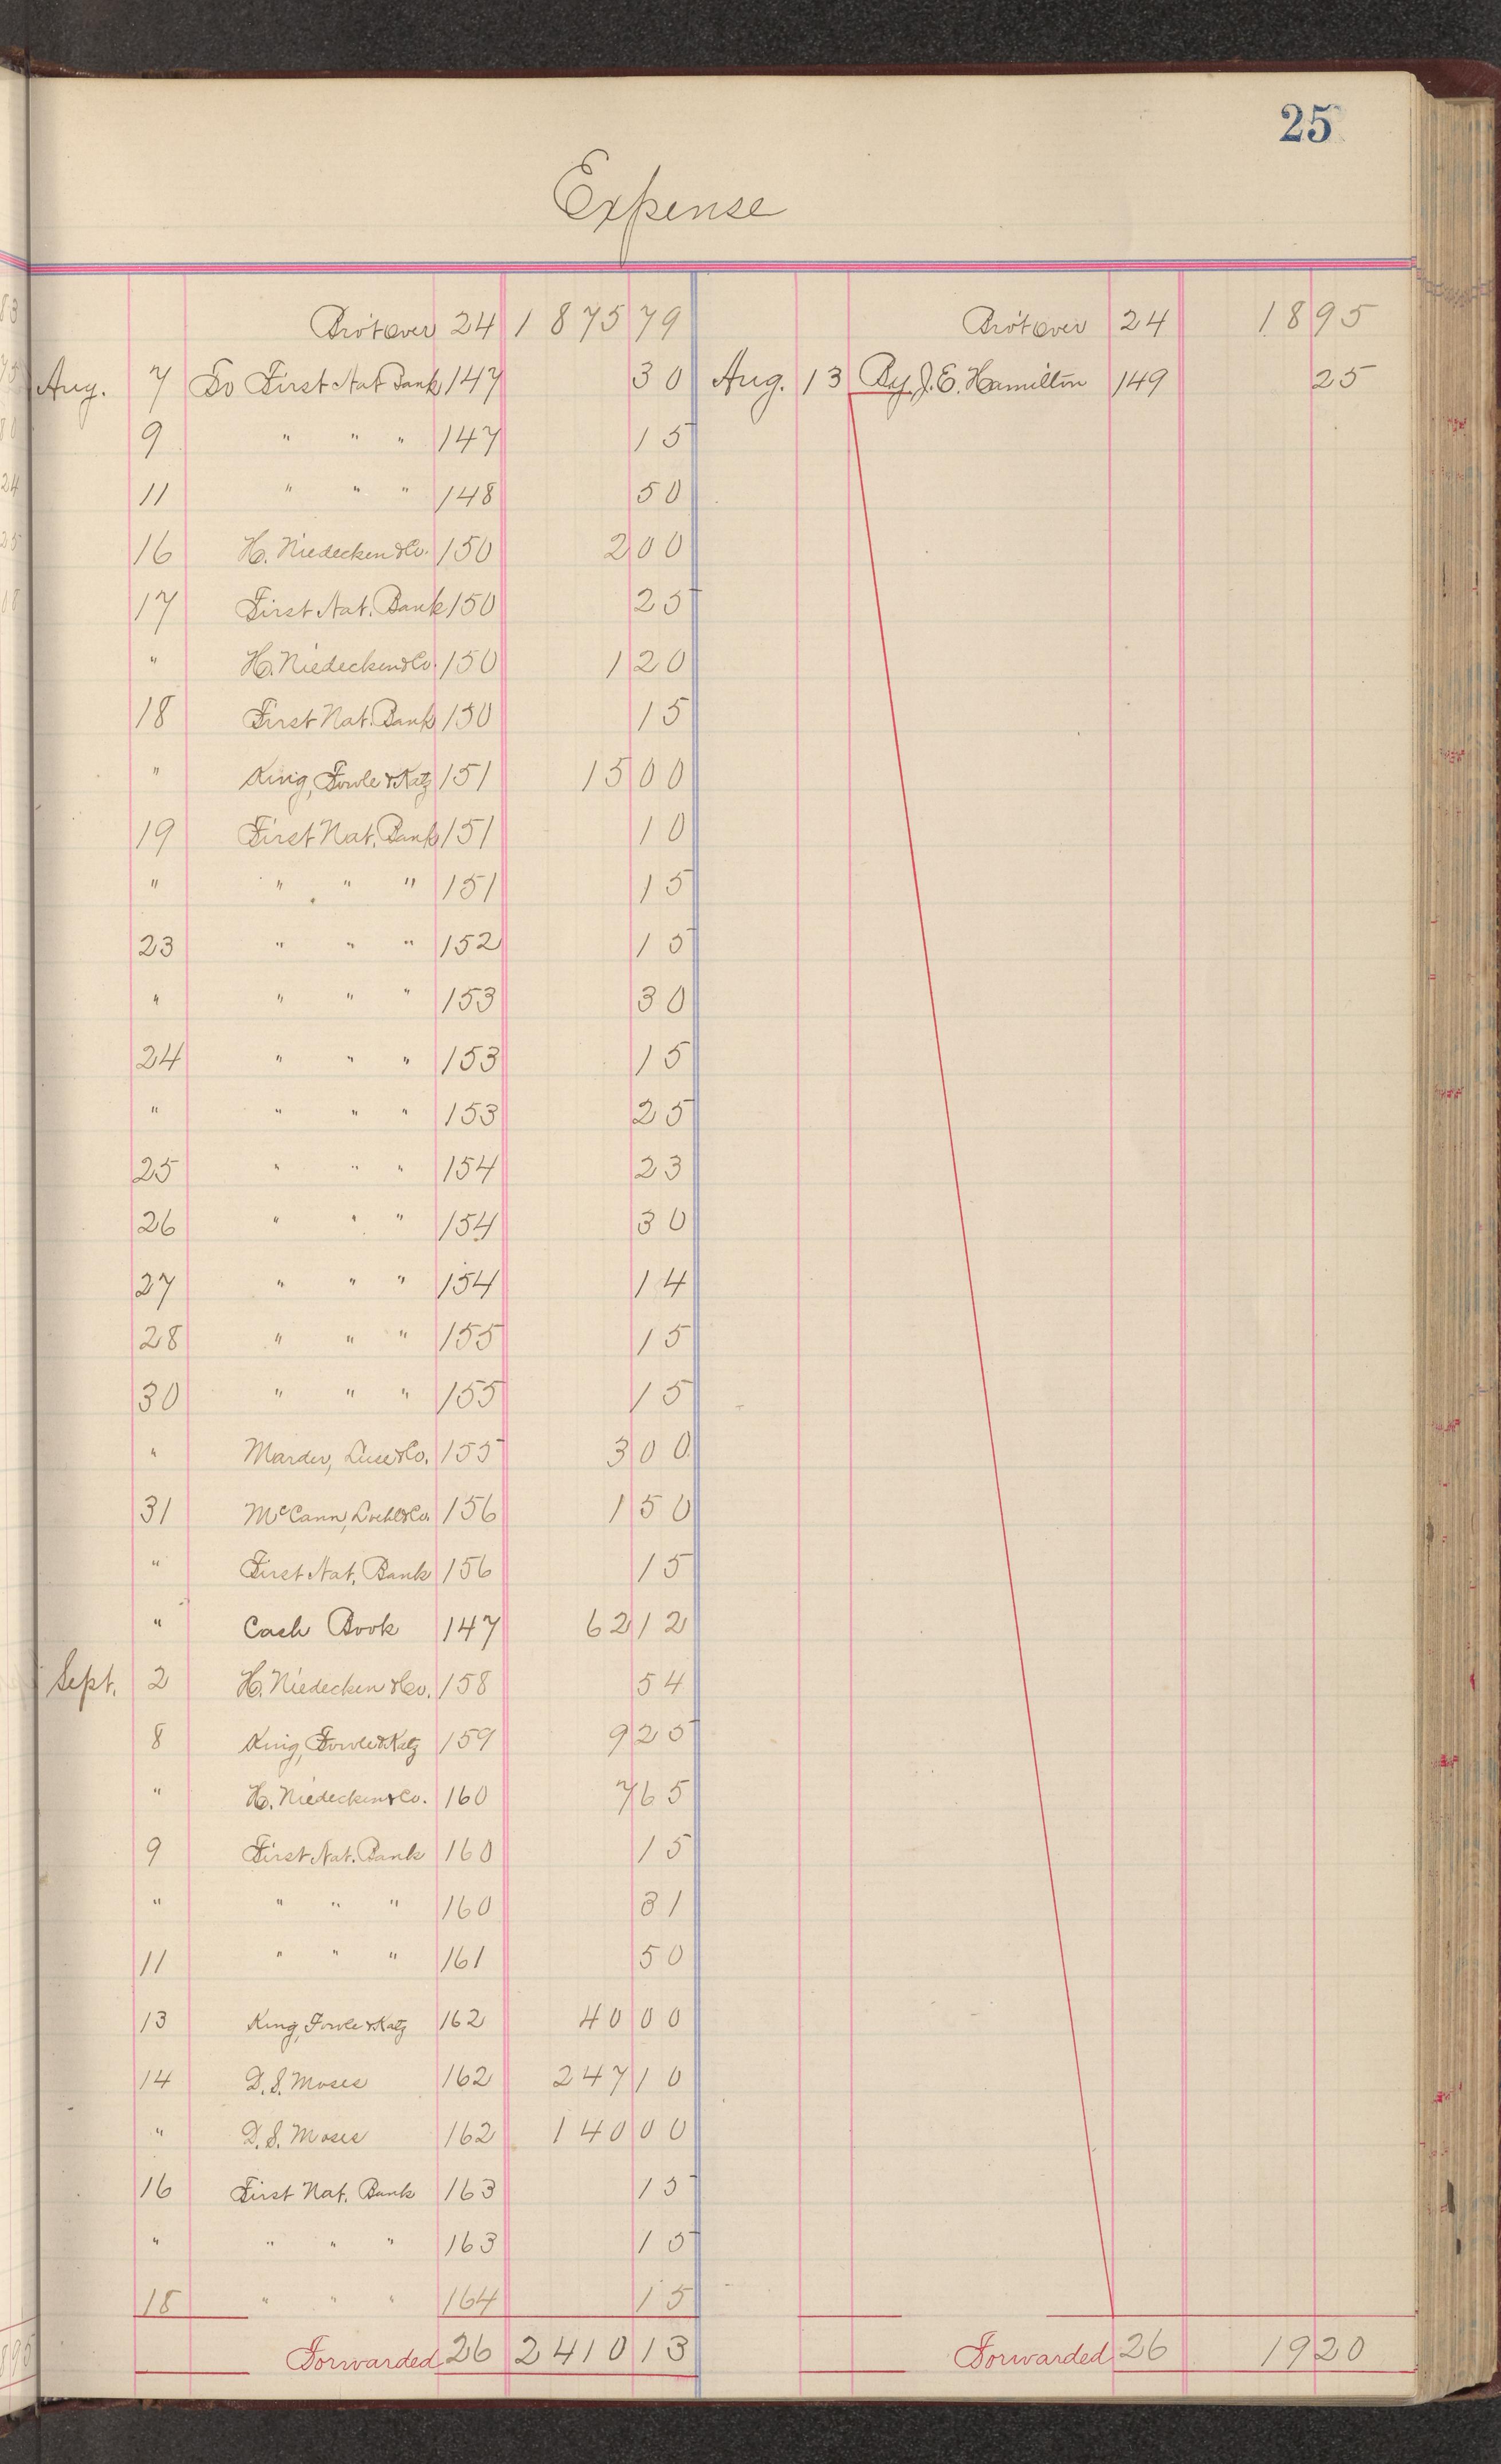 25
Expense
Bro't over 24 1 875 79 Bro't over 24 18 95
Aug. 7 To First Nat Bank 147 30 Aug. 13 By J. E. Hamilton 149 25
9 " " " 147 15
11 " " " 148 50
16 H. Niedecken & Co. 150 2 00
17 First Nat. Bank 150 25
" H. Niedecken & Co. 150 1 20
18 First Nat. Bank 150 15
" King, Fowle & Katz 151 15 00
19 First Nat. Bank 151 10
" " " " 151 15
23 " " " 152 15
" " " " 153 30
24 " " " 153 15
" " " " 153 25
25 " " " 154 23
26 " " " 154 30
27 " " " 154 14
28 " " " 155 15
30 " " " 155 15
" Marder, Luse & Co. 155 3 00
31 McCann, & Co. 156 1 50
" First Nat. Bank 156 15
" Cash Book 147 62 12
Sept. 2 H. Niedecken & Co. 158 54
8 King, Fowle & Katz 159 9 25
" H. Niedecken & Co. 160 7 65
9 First Nat. Bank 160 15
" " " " 160 31
11 " " " 161 50
13 King, Fowle & Katz 162 40 00
14 D. S. Moses 162 247 10
" D. S. Moses 162 140 00
16 First Nat. Bank 163 15
" " " " 163 15
18 " " " 164 15
Forwarded 26 2410 13 Forwarded 26 19 20